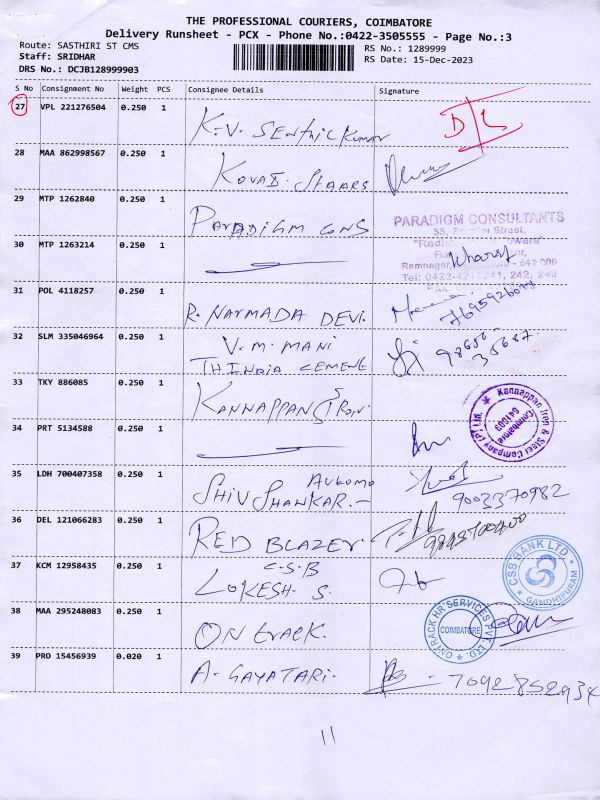 THE PROFESSIONAL COURIERS, COIMBATORE
Delivery Runsheet - PCX - Phone No.:0422-3505555 - Page No.:3
Route: SASTHIRI ST CMS
RS No.: 1289999
Staff: SRIDHAR
RS Date: 15-Dec-2023
DRS No.: DCJB128999903
S No Consignment No Weight PCS Consignee Details Signature
27 VPL 221276504 0.250 1 K.V. SENTHIL KUMAR D/L
28 MAA 862998567 0.250 1 KOVAI. STAARS
29 MTP 1262840 0.250 1 PARADIGM CONS
PARADIGM CONSULTANTS
30 MTP 1263214 0.250 1
31 POL 4118257 0.250 1 R. NARMADA DEVI. 7695926098
32 SLM 335046964 0.250 1 V.M. MANI
TH INDIA CEMENE
33 TKY 886085 0.250 1 KANNAPPAN IRON.
Kannappan Iron & Steel Company (P) Ltd. Coimbatore 641009
34 PRT 5134588 0.250 1
35 LDH 700407358 0.250 1 SHIV SHANKAR. AUTOMO 9003370982
36 DEL 121066283 0.250 1 RED BLAZER.
37 KCM 12958435 0.250 1 C.S.B
LOKESH. S.
CSB BANK LTD GANDHIPURAM
38 MAA 295248083 0.250 1 ON track.
ONTRACK HR SERVICES PVT. LTD. COIMBATORE
39 PRO 15456939 0.020 1 A. GAYATARI. - 7092852934
11